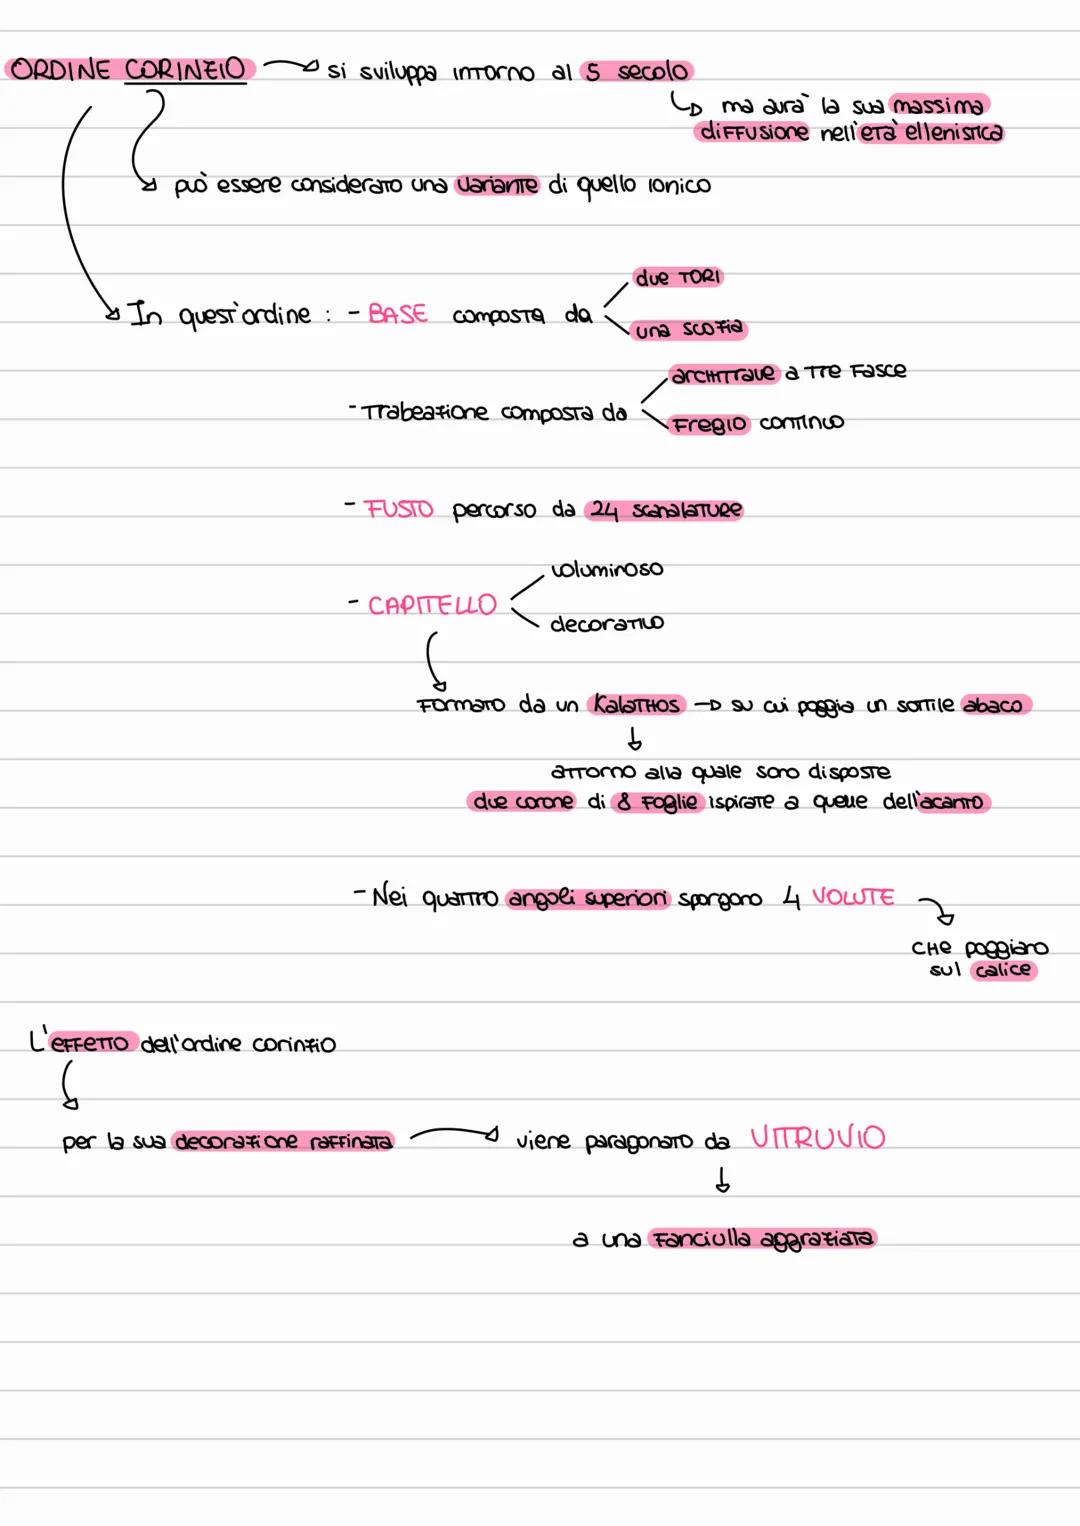 ORDINE CORINZIO → si sviluppa intorno al 5 secolo
↳ ma avrà la sua massima
diffusione nell'età ellenistica
può essere considerato una variante di quello ionico
due TORI
In quest'ordine : - BASE composta da
una scozia
architrave a tre fasce
- Trabeazione composta da
fregio continuo
- FUSTO percorso da 24 scanalature
voluminoso
- CAPITELLO
decorativo
Formato da un Kalathos → su cui poggia un sottile abaco
↓
attorno alla quale sono disposte
due corone di 8 foglie ispirate a quelle dell'acanto
- Nei quattro angoli superiori sporgono 4 VOLUTE
che poggiano
sul calice
L'effetto dell'ordine corinzio
per la sua decorazione raffinata → viene paragonato da VITRUVIO
↓
a una fanciulla aggraziata